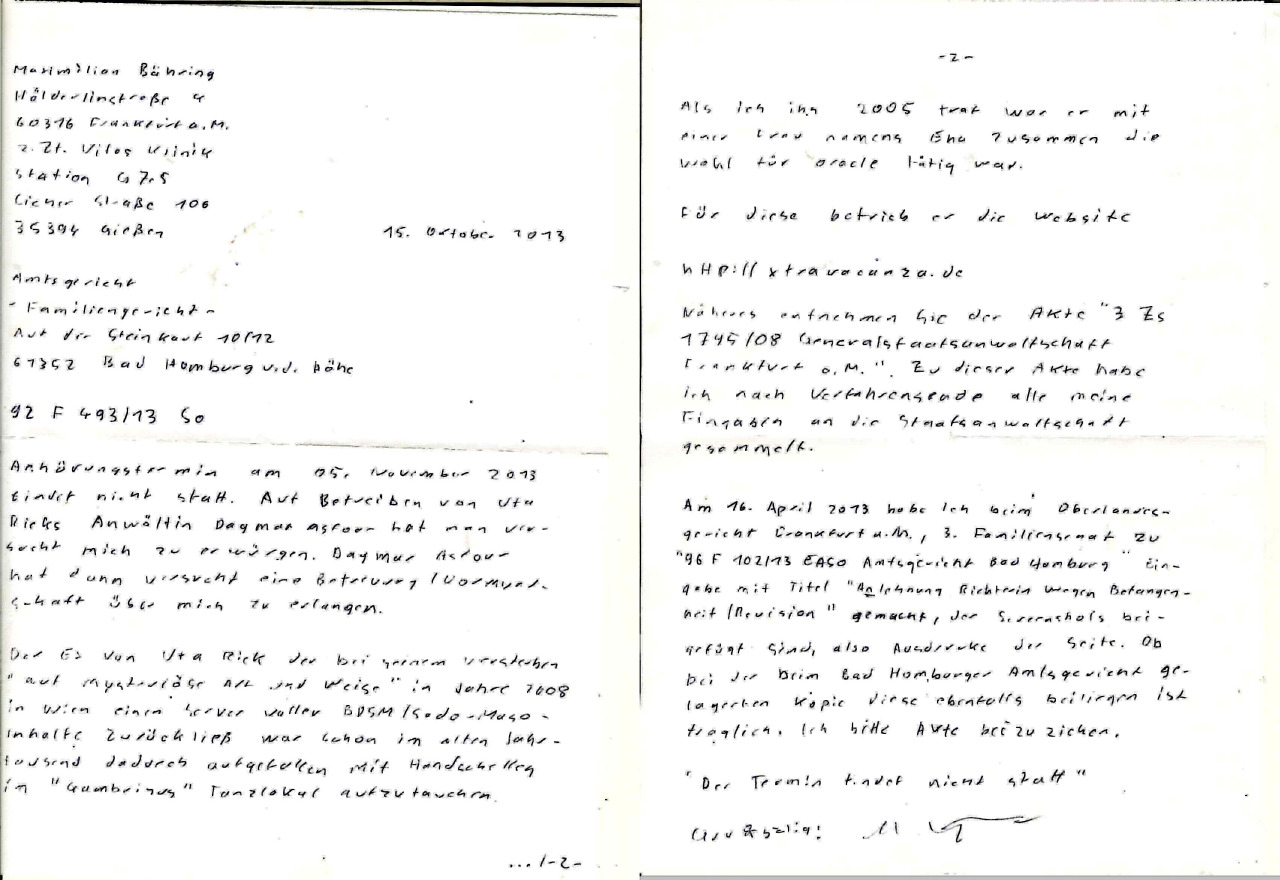 Maximilian Bähring
Hölderlinstraße 4
60316 Frankfurt a.M.
z.Zt. Vitos Klinik
Station G 7.5
Licher Straße 106
35394 Gießen
15. Oktober 2013
Amtsgericht
- Familiengericht -
Auf der Steinkaut 10/12
61352 Bad Homburg v.d. Höhe
92 F 493/13 So
Anhörungstermin am 05. November 2013
findet nicht statt. Auf Betreiben von Uta
Ricks Anwältin Dagmar Asfour hat man ver-
sucht mich zu erwürgen. Dagmar Asfour
hat dann versucht eine Betreuung / Vormund-
schaft über mich zu erlangen.
Der Ex von Uta Rick der bei seinem versterben
"auf mysteriöse Art und Weise" in Jahre 2008
in Wien einen Server voller BDSM/Sado-Maso-
inhalte zurückließ war schon im alten Jahr-
tausend dadurch aufgefallen mit Handschellen
im "Gambrinus" Tanzlokal aufzutauchen.
.../-2-
-2-
Als ich ihn 2005 traf war er mit
einer Frau namens Ena zusammen die
wohl für oracle tätig war.
Für diese betrieb er die website
http://xtravacanza.de
Näheres entnehmen Sie der Akte "3 Zs
1795/08 Generalstaatsanwaltschaft
Frankfurt a.M.". Zu dieser Akte habe
ich nach Verfahrensende alle meine
Eingaben an die Staatsanwaltschaft
gesammelt.
Am 16. April 2013 habe ich beim Oberlandes-
gericht Frankfurt a.M., 3. Familiensenat zu
"96 F 102/13 EASO Amtsgericht Bad Homburg" Ein-
gabe mit Titel "Anlehnung Richterin wegen Befangen-
heit/Revision" gemacht, der Screenshots bei-
gefügt sind, also Ausdrucke der Seite. Ob
bei der beim Bad Homburger Amtsgericht ge-
lagerten Kopie diese ebenfalls beiliegen ist
fraglich. Ich bitte Akte beizuziehen.
"Der Termin findet nicht statt"